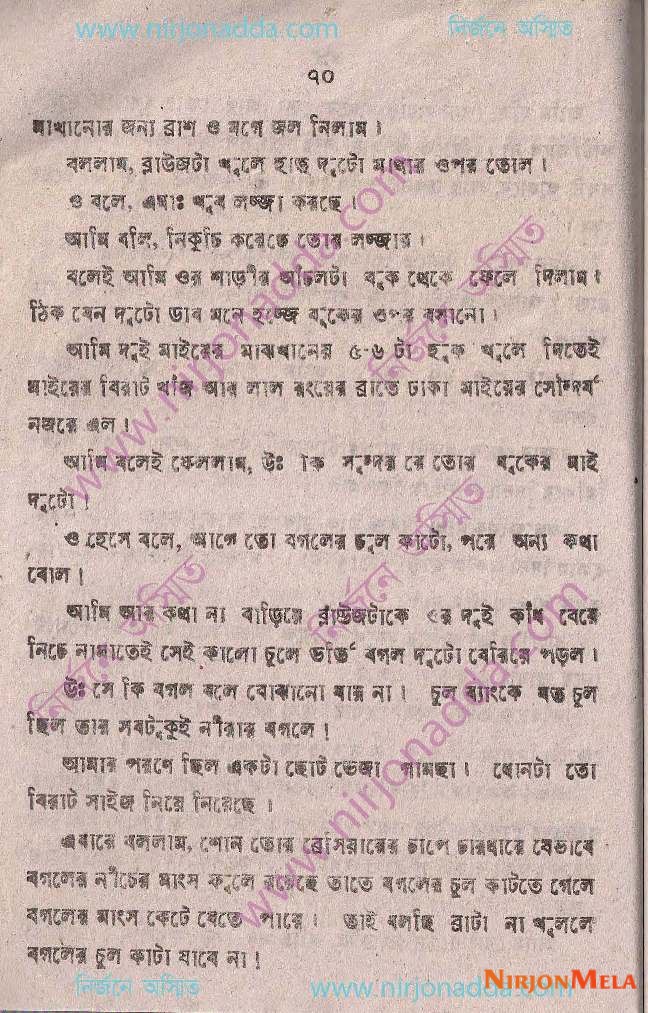 www.nirjonadda.com নির্জনে অস্মিত
৭০
মাখানোর জন্য ব্রাশ ও মগে জল নিলাম।
বললাম, ব্লাউজটা খুলে হাত দুটো মাথার ওপর তোল।
ও বলে, এমাঃ খুব লজ্জা করছে।
আমি বলি, নিকুচি করেছে তোর লজ্জার।
বলেই আমি ওর শাড়ীর আঁচলটা বুক থেকে ফেলে দিলাম।
ঠিক যেন দুটো ডাব মনে হচ্ছে বুকের ওপর বসানো।
আমি দুই মাইয়ের মাঝখানের ৫-৬ টা হুক খুলে দিতেই
মাইয়ের বিরাট খাঁজ আর লাল রংয়ের ব্রাতে ঢাকা মাইয়ের সৌন্দর্য
নজরে এল।
আমি বলেই ফেললাম, উঃ কি সুন্দর রে তোর বুকের মাই
দুটো।
ও হেসে বলে, আগে তো বগলের চুল কাটো, পরে অন্য কথা
বোল।
আমি আর কথা না বাড়িয়ে ব্লাউজটাকে ওর দুই কাঁধ বেয়ে
নিচে নামাতেই সেই কালো চুলে ভর্তি বগল দুটো বেরিয়ে পড়ল।
উঃ সে কি বগল বলে বোঝানো যায় না। চুল ব্যাংকে যত চুল
ছিল তার সবটুকুই নীরার বগলে!
আমার পরণে ছিল একটা ছোট ভেজা গামছা। ধোনটা তো
বিরাট সাইজ নিয়ে নিয়েছে।
এবারে বললাম, শোন তোর ব্রেসিয়ারের চাপে চারধারে যেভাবে
বগলের নীচের মাংস ফুলে রয়েছে তাতে বগলের চুল কাটতে গেলে
বগলের মাংস কেটে যেতে পারে। তাই বলছি ব্রাটা না খুললে
বগলের চুল কাটা যাবে না!
www.nirjonadda.com
নির্জনে অস্মিত
নির্জনে অস্মিত
নির্জনে অস্মিত
www.nirjonadda.com
নির্জনে অস্মিত www.nirjonadda.com
NIRJONMELA